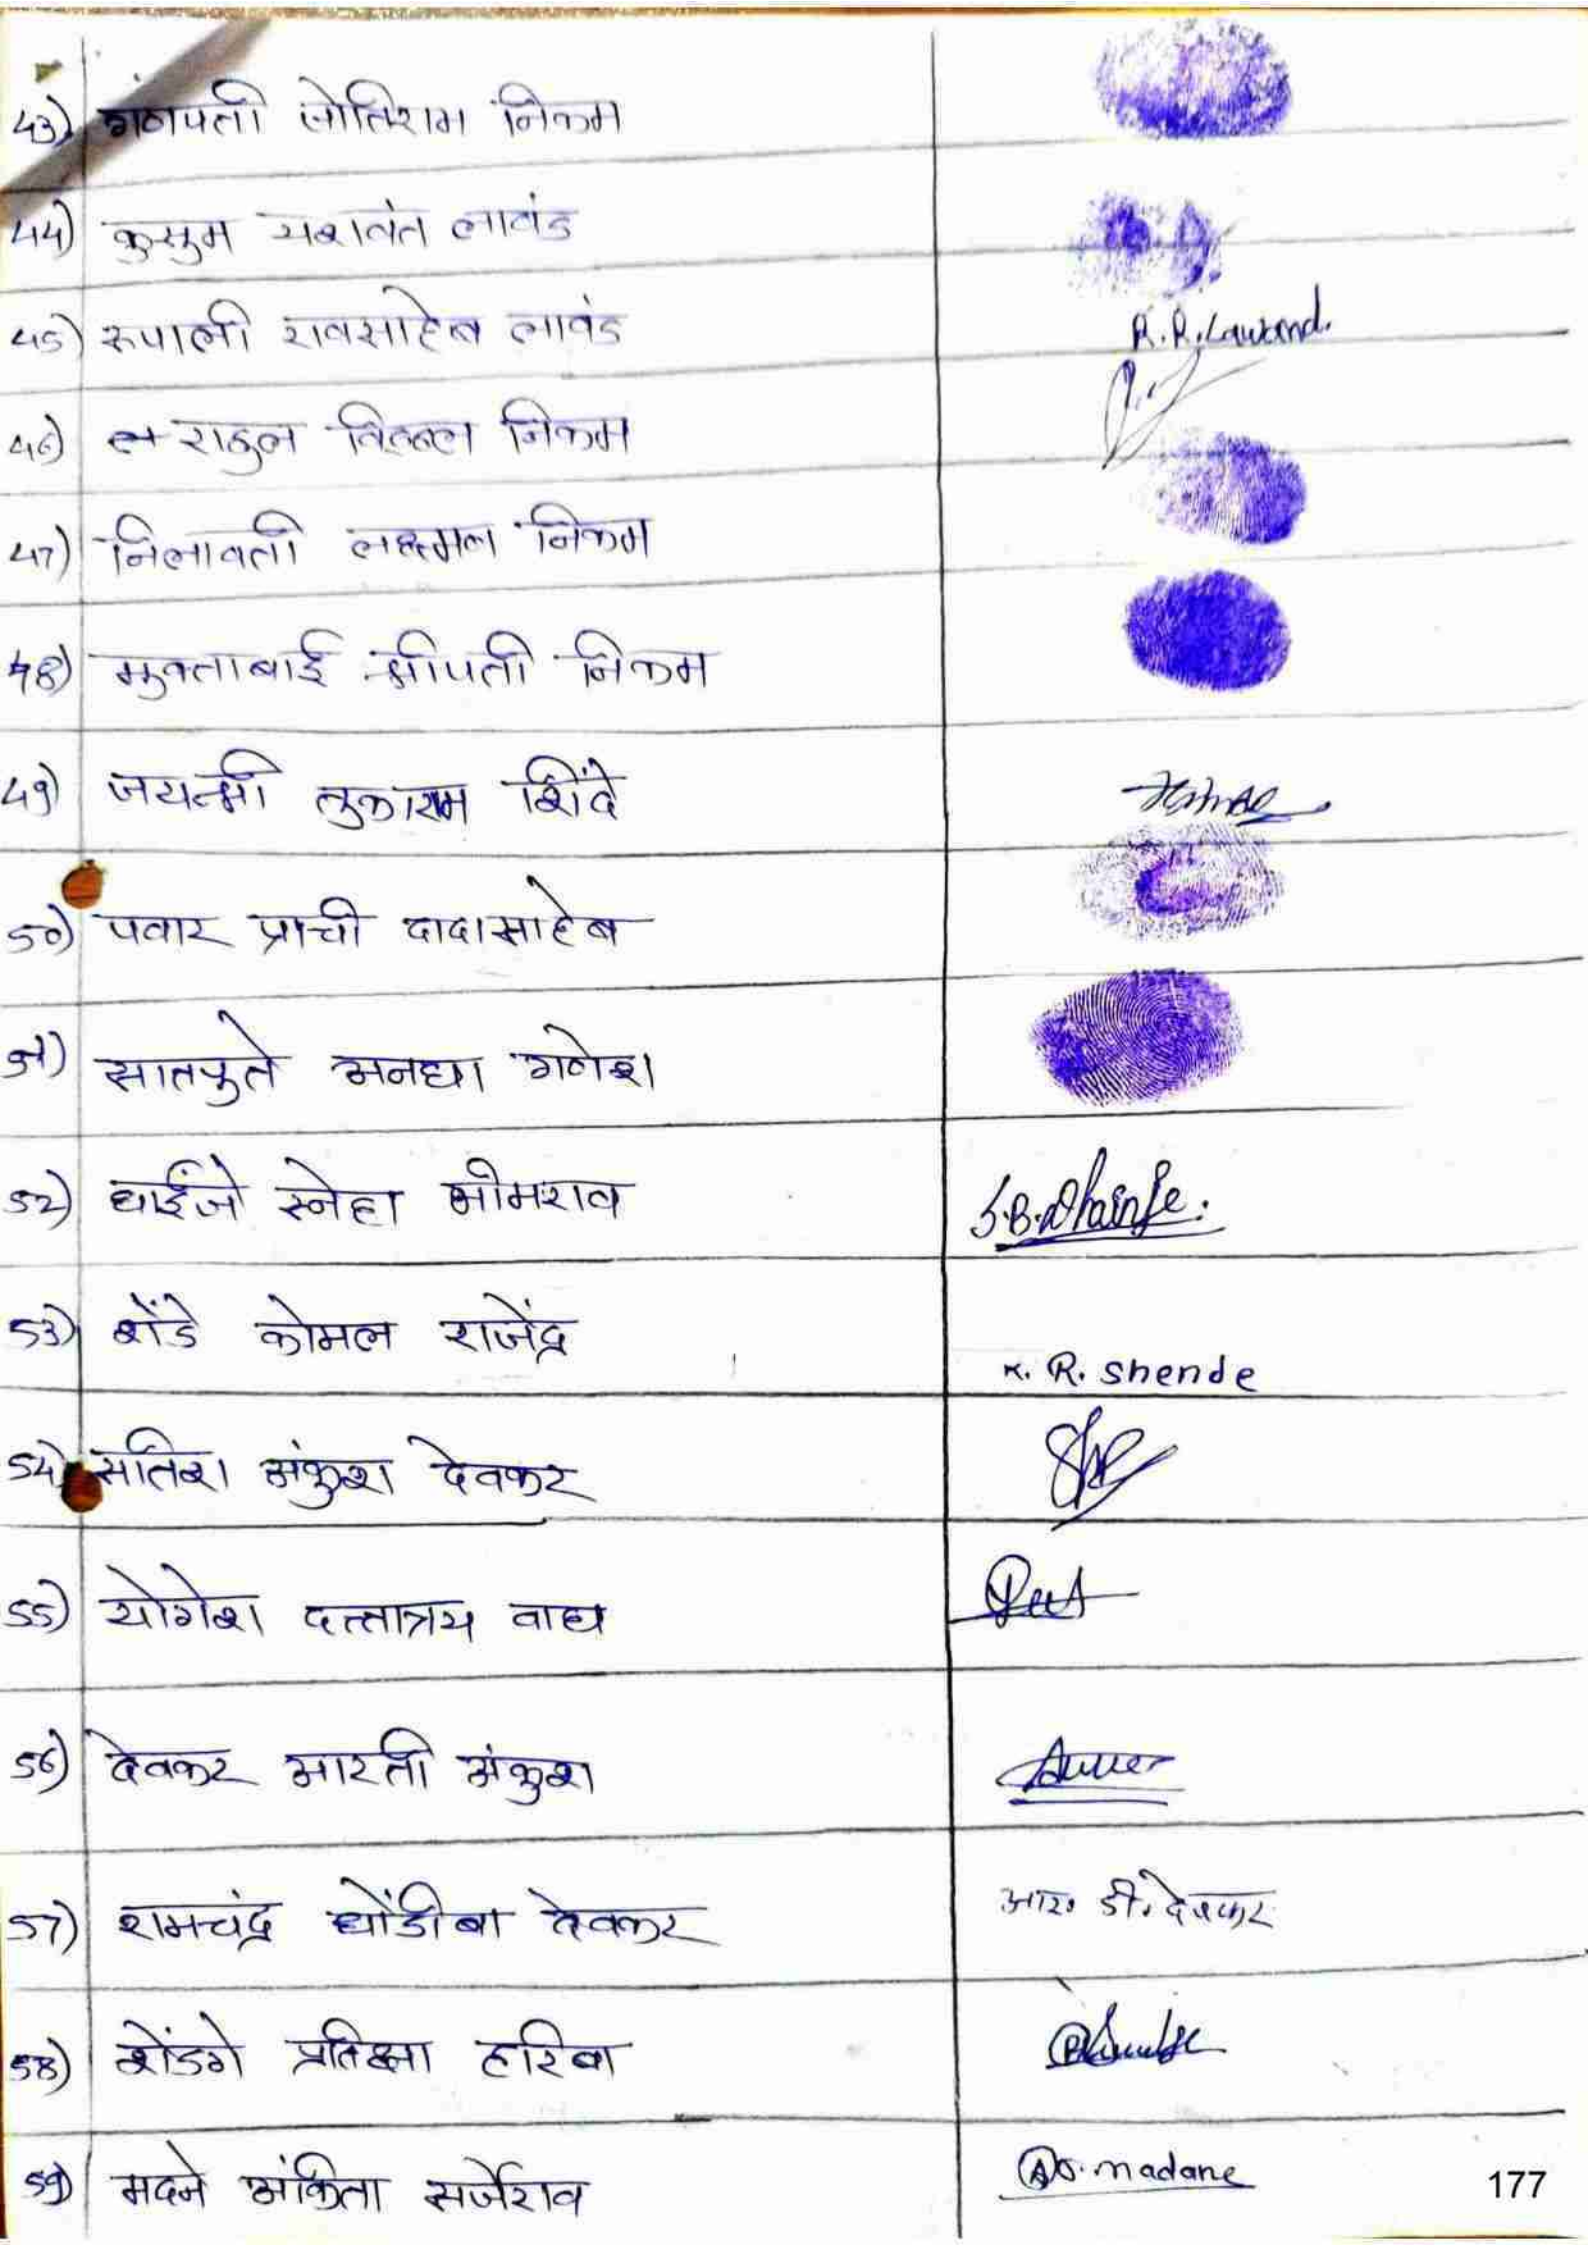 43) गणपती जोतिराम निकम
44) कुसुम यशवंत लावंड
45) रुपाली रावसाहेब लावंड R.R.Lawand.
46) राहुल विठ्ठल निकम
47) निलावती लक्ष्मण निकम
48) मुक्ताबाई श्रीपती निकम
49) जयश्री तुकाराम शिंदे
50) पवार प्राची दादासाहेब
51) सातपुते अनघा गणेश
52) धाईंजे स्नेहा भीमराव S.B.Dhainje.
53) शेंडे कोमल राजेंद्र K. R. Shende
54) सतिश अंकुश देवकर
55) योगेश दत्तात्रय वाघ
56) देवकर आरती अंकुश
57) रामचंद्र धोंडीबा देवकर आर. डी. देवकर
58) शेंडगे प्रतिक्षा हरिबा
59) मदने अंकिता सर्जेराव A.S. madane
177